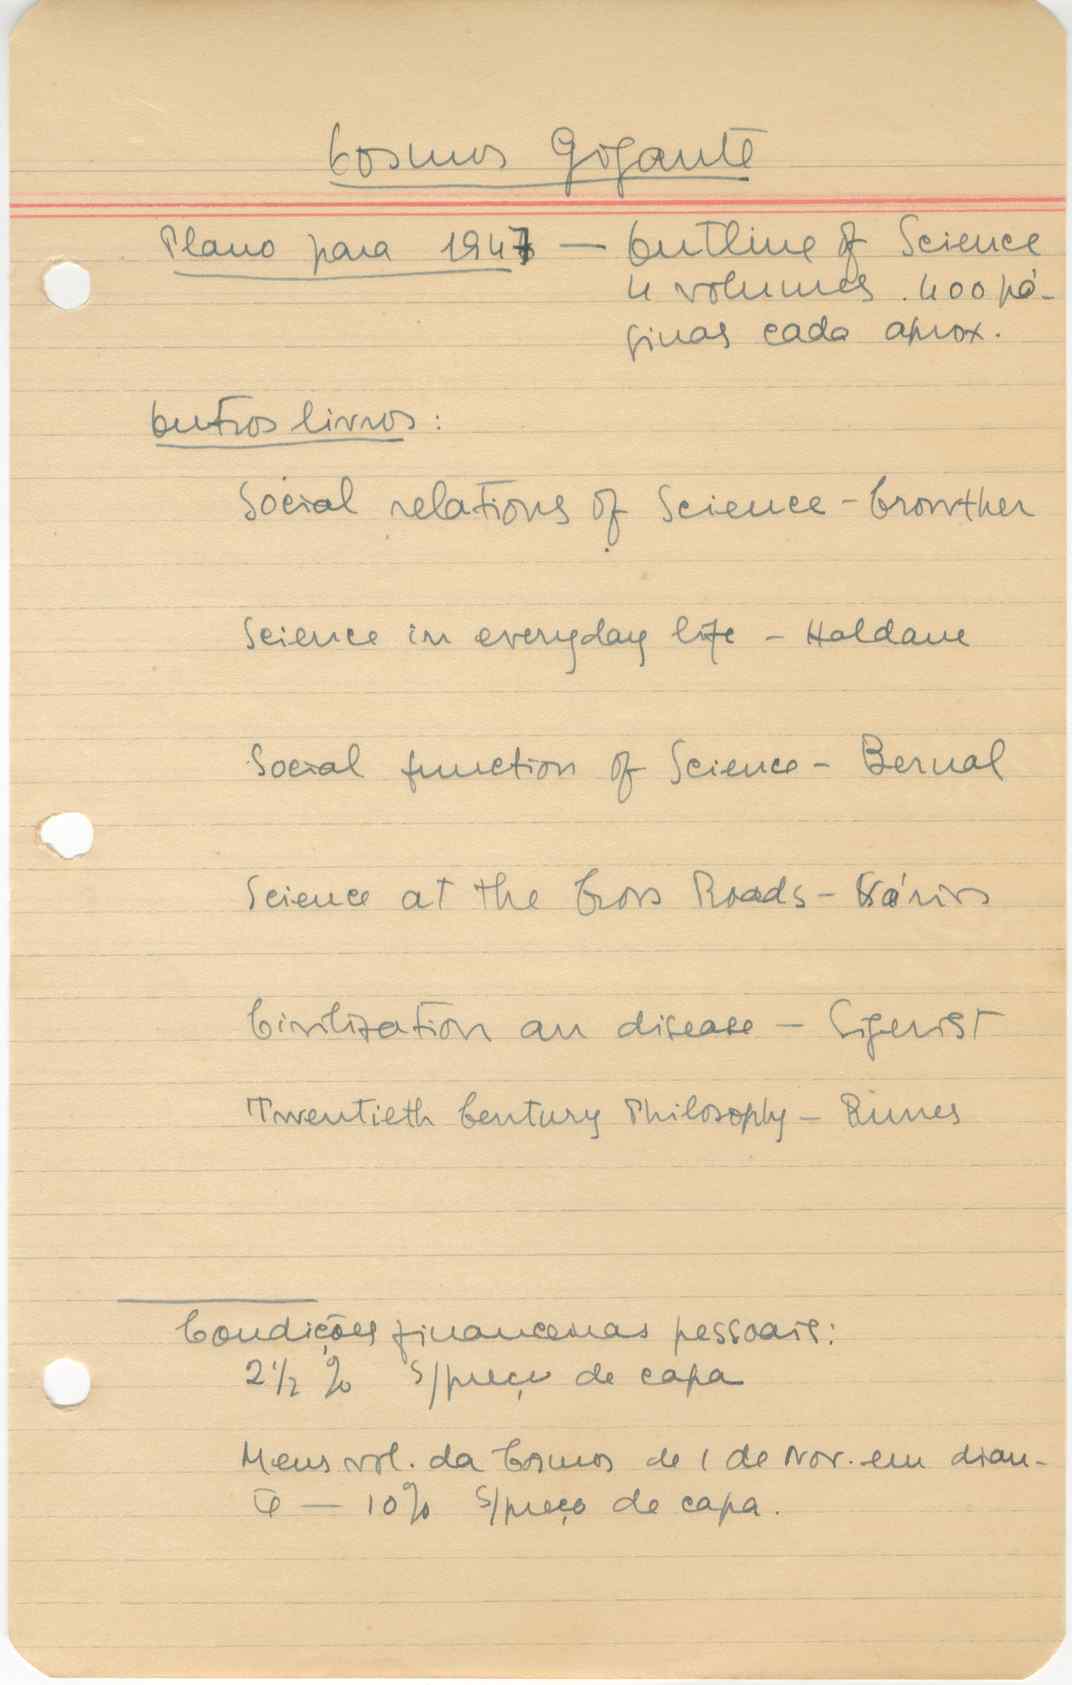 Cosmos Gigante
Plano para 1947 — Outline of Science
4 volumes. 400 pá-
ginas cada aprox.
Outros livros:
Social relations of Science – Crowther
Science in everyday life – Haldane
Social function of Science – Bernal
Science at the Cross Roads – Vários
Civilization an disease – Sigerist
Twentieth Century Philosophy – Runes
Condições financeiras pessoais:
2 1/2 % s/preço de capa
Meus vol. da Cosmos de 1 de Nov. em dian-
te — 10% s/preço de capa.